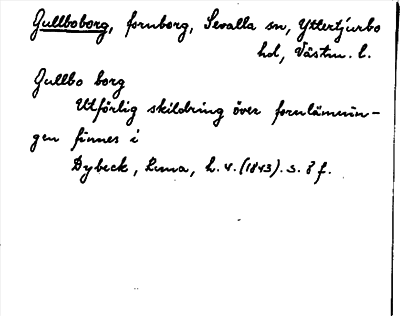 Gullboborg, fornborg, Sevalla sn, Yttertjurbo
hd, Västm. l.
Gullbo borg
Utförlig skildring över fornlämnin-
gen finnes i
Dybeck, Runa, h. 4. (1843). s. 8 f.